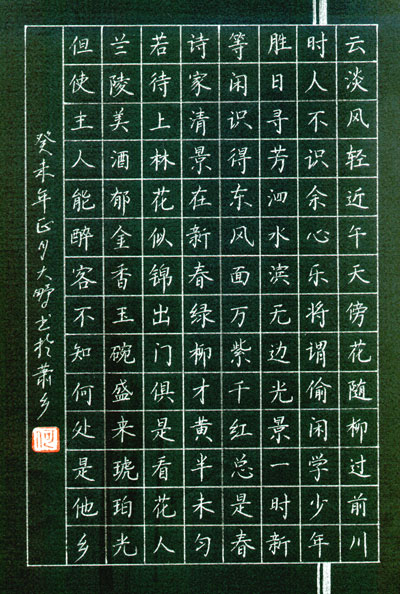 云淡风轻近午天傍花随柳过前川
时人不识余心乐将谓偷闲学少年
胜日寻芳泗水滨无边光景一时新
等闲识得东风面万紫千红总是春
诗家清景在新春绿柳才黄半未匀
若待上林花似锦出门俱是看花人
兰陵美酒郁金香玉碗盛来琥珀光
但使主人能醉客不知何处是他乡
癸未年正月大野书於萧乡